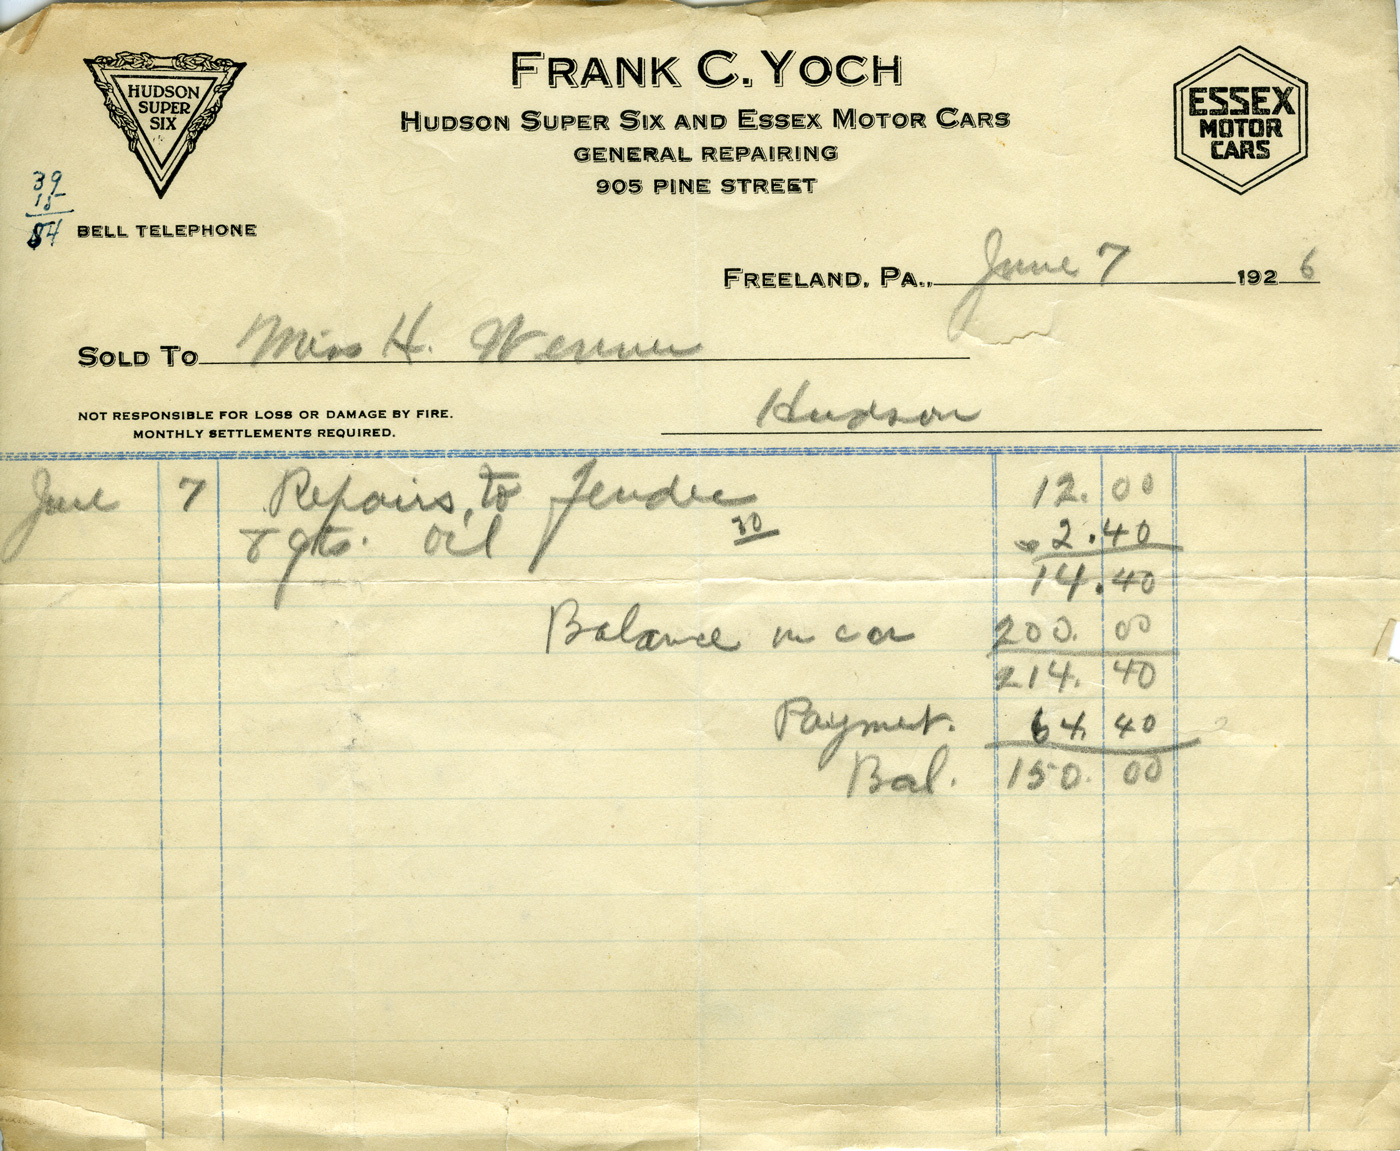 HUDSON
SUPER
SIX
FRANK C. YOCH
HUDSON SUPER SIX AND ESSEX MOTOR CARS
GENERAL REPAIRING
905 PINE STREET
ESSEX
MOTOR
CARS
39
15
54
BELL TELEPHONE
FREELAND, PA., June 7 1926
SOLD TO Miss H. Werner
NOT RESPONSIBLE FOR LOSS OR DAMAGE BY FIRE.
MONTHLY SETTLEMENTS REQUIRED.
Hudson
June 7 Repairs to fender 12.00
8 qts. oil 30 2.40
14.40
Balance on car 200.00
214.40
Payment. 64.40
Bal. 150.00